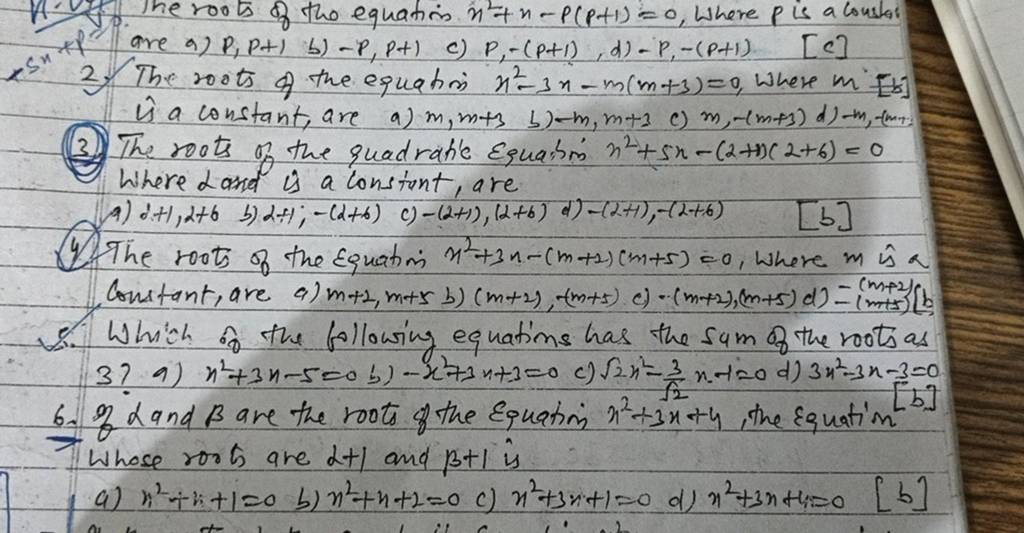 The roots of the equation x²+x-P(P+1)=0, Where P is a
are a) P, P+1 b) -P, P+1 c) P,-(P+1), d) -P,-(P+1) [c]
2. The roots of the equation x²-3x-m(m+3)=0, Where m [b]
is a constant, are a) m, m+3 b)-m, m+3 c) m,-(m+3) d)-m,
3 The roots of the quadratic Equation x²+5x-(2+1)(2+6)=0
Where α and is a constant, are
a) α+1, α+6 b) α+1, -(α+6) c) -(α+1), (α+6) d) -(α+1),-(α+6) [b]
4 The roots of the Equation x²+3x-(m+2)(m+5)=0, Where m is a
Constant, are a) m+2, m+5 b) (m+2), -(m+5) c) -(m+2),(m+5) d) -(m+2) -(m+5) [b
5. Which of the following equations has the sum of the roots as
3? a) x²+3x-5=0 b) -x²+3x+3=0 c) √2x²-3/√2 x-1=0 d) 3x²-3x-3=0
[b]
6. If α and β are the roots of the Equation x²+3x+4, the Equation
Whose roots are α+1 and β+1 is
a) x²+x+1=0 b) x²+x+2=0 c) x²+3x+1=0 d) x²+3x+4=0 [b]